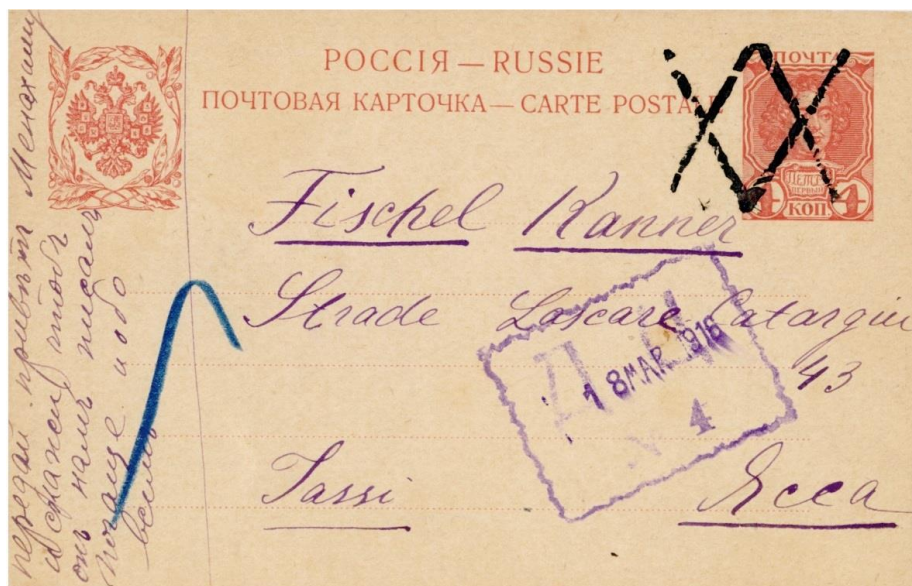 РОССІЯ — RUSSIE
ПОЧТОВАЯ КАРТОЧКА — CARTE POSTALE
ПОЧТА
ПЕТРЪ ПЕРВЫЙ
4 КОП. 4
Fischel Kanner
Strade Lascare Catargiu
43
Jassi Ясса
18 MAR 1916
4
передай привѣтъ Менахиму
и скажи чтобъ
онъ намъ писалъ
почаще и обо
всемъ